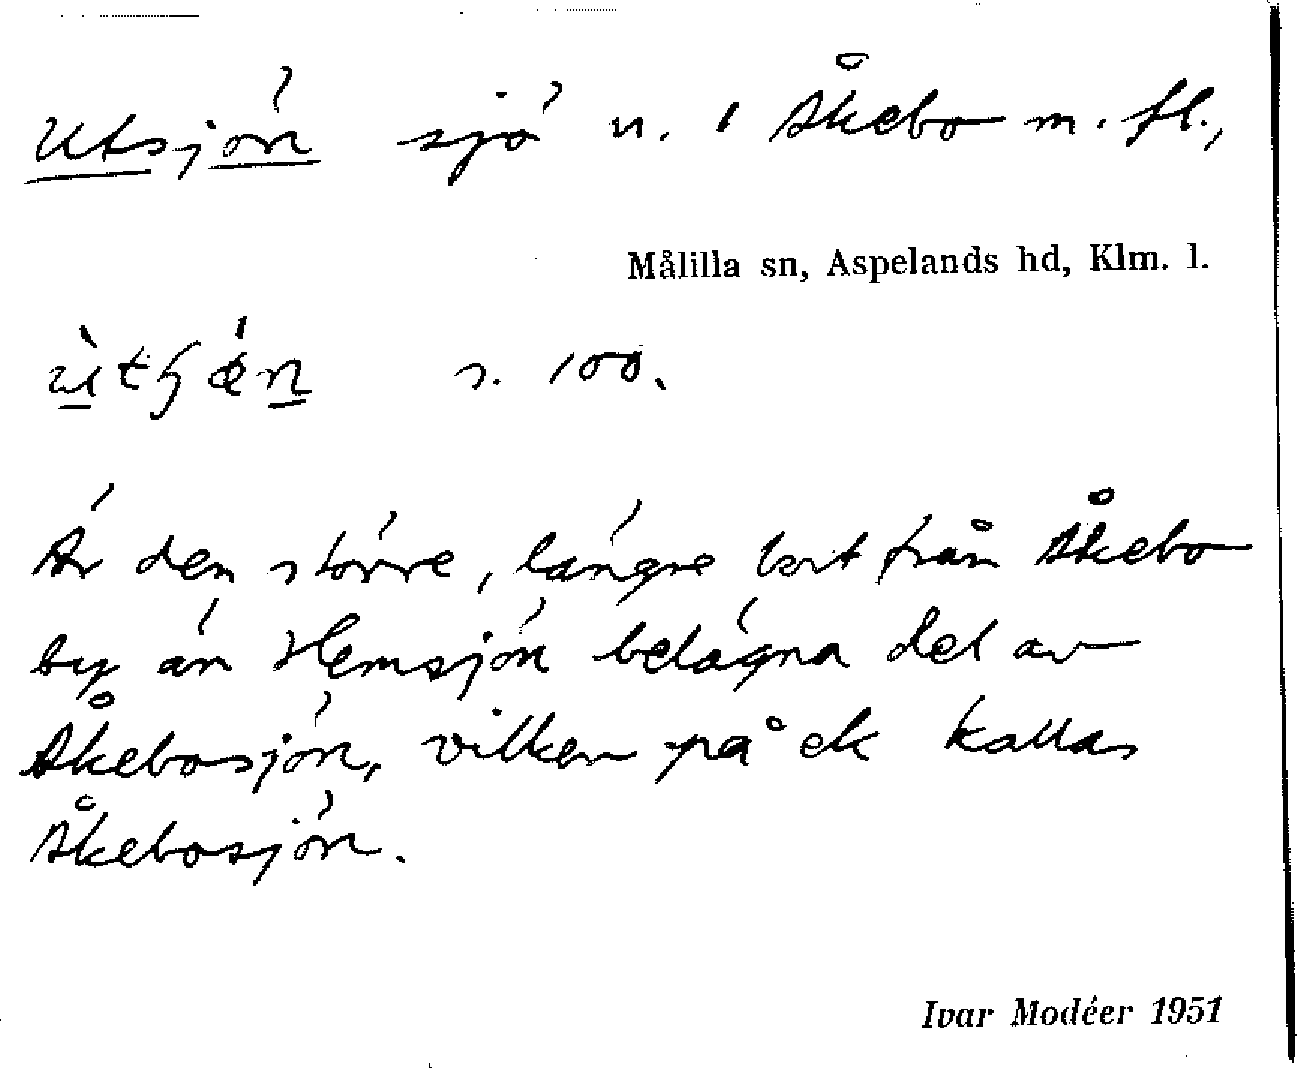 Utsjön sjö u. 1 Åkebo m. fl.,
Målilla sn, Aspelands hd, Klm. l.
s. 100.
Är den större, längre bort från Åkebo
by än Hemsjön belägna del av
Åkebosjön, vilken på ek kallas
Åkebosjön.
Ivar Modéer 1951